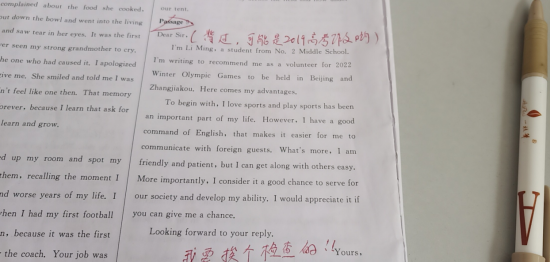 complained about the food she cooked,
our down the bowl and went into the living
and saw tear in her eyes. It was the first
ver seen my strong grandmother to cry,
he one who had caused it. I apologized
ive me. She smiled and told me I was
n't feel like one then. That memory
orever, because I learn that ask for
learn and grow.
ed up my room and spot my
them, recalling the moment I
nd worse years of my life. I
when I had my first football
n, because it was the first
the coach. Your job was
our tent.
Passage 7
Dear Sir, (背过，可能是2019高考作文哟)
I'm Li Ming, a student from No. 2 Middle School.
I'm writing to recommend me as a volunteer for 2022
Winter Olympic Games to be held in Beijing and
Zhangjiakou. Here comes my advantages.
To begin with, I love sports and play sports has been
an important part of my life. However, I have a good
command of English, that makes it easier for me to
communicate with foreign guests. What's more, I am
friendly and patient, but I can get along with others easy.
More importantly, I consider it a good chance to serve for
our society and develop my ability. I would appreciate it if
you can give me a chance.
Looking forward to your reply.
我要挨个检查的!! Yours,
A